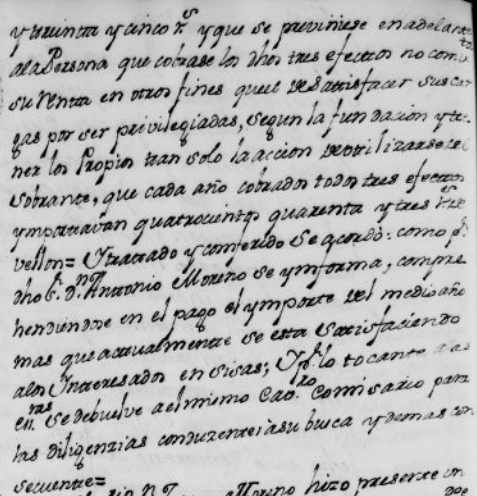 y treinta y cinco r.s y que se previniese en adelante
a la Persona que cobrase los dhos tres efectos no com
su renta en otros fines que el de Sattisfacer sus car
gas por ser privilegiadas, segun la fundacion y te
ner los Propios tan solo la accion de utilizarse del
sobrante, que cada año cobrados todos tres efectos
ymporttavan quatrocientos quarenta y tres r.s de
vellon= Y trattado y conferido se acordò: como p.r
dho S.r d.n Anttonio Moreno se ymforma, compre
hendiendose en el pago el ymporte del medio año
mas que actualmente se esta Sattisfaciendo
a los Ynteresados en sisas; Y p.r lo tocante a
se debuelve a el mismo Cav.ro Comisario para
las diligenzias conduzentes a su busca y demas con
secuente=
Moreno hizo presente un